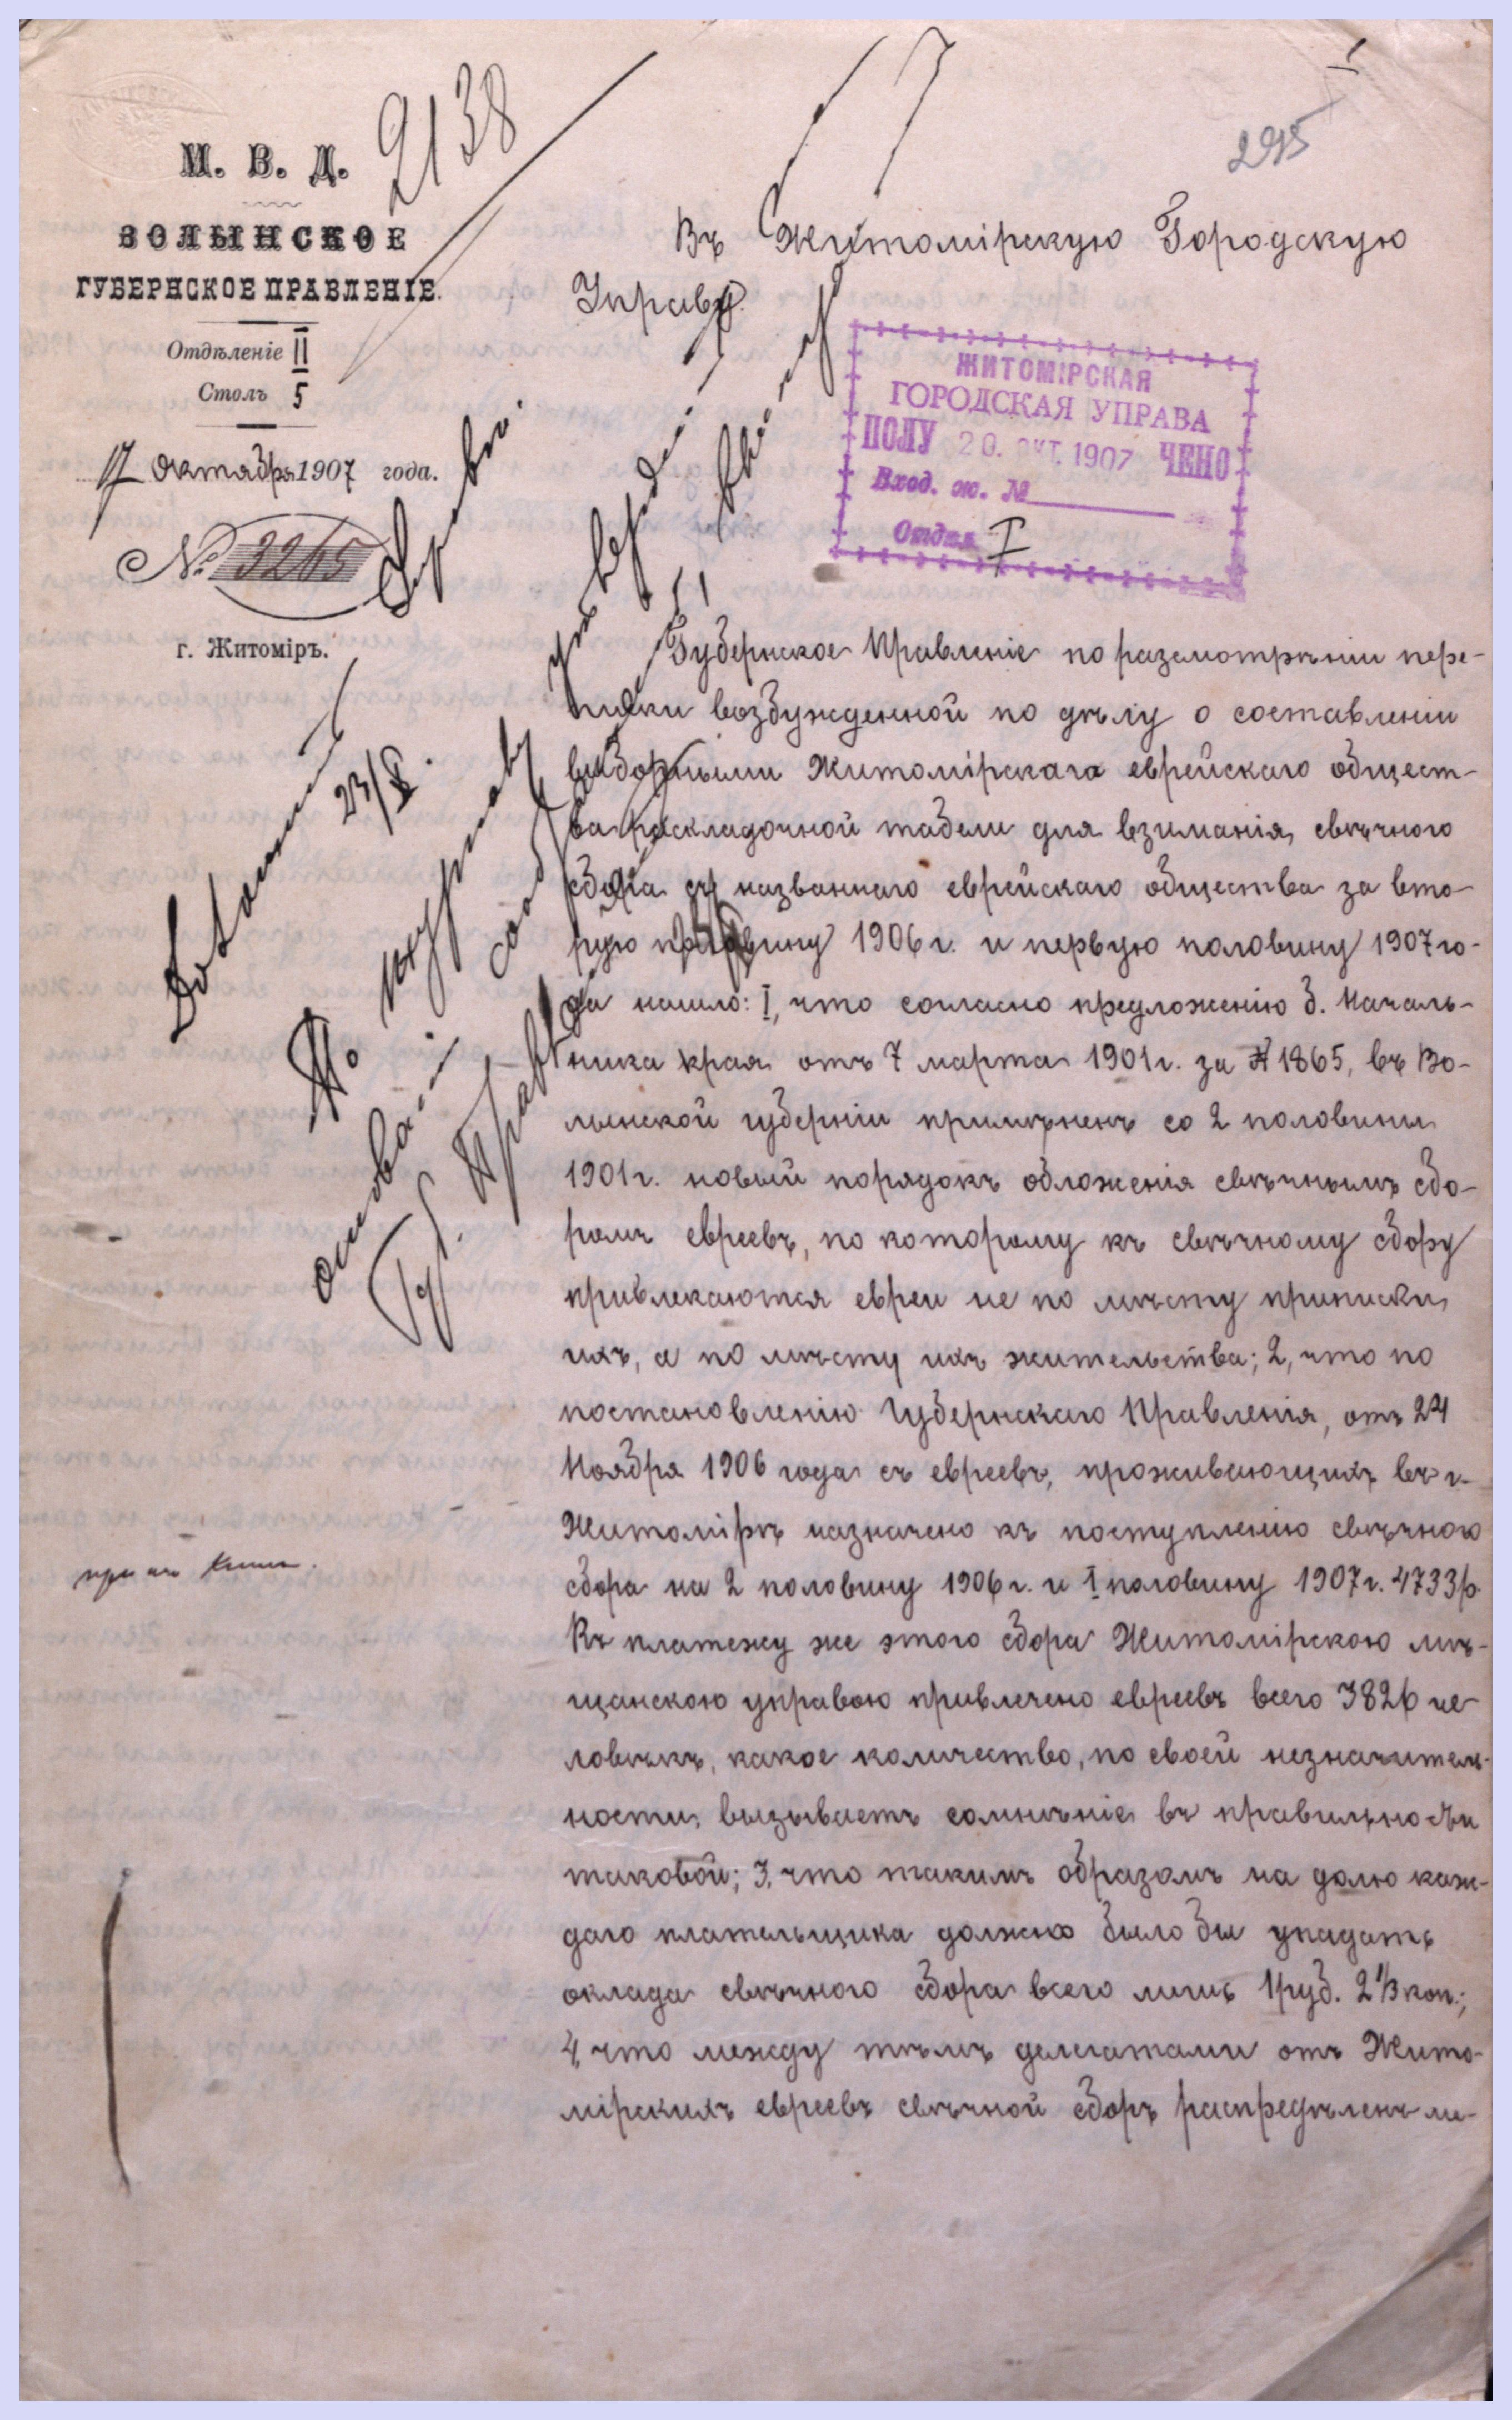 9138
295
М. В. Д.
ВОЛЫНСКОЕ
ГУБЕРНСКОЕ ПРАВЛЕНІЕ.
Отдѣленіе II
Столъ 5
17 Октября 1907 года.
№ 3265
г. Житоміръ.
Въ Житомірскую Городскую
Управу.
ЖИТОМІРСКАЯ
ГОРОДСКАЯ УПРАВА
ПОЛУ 20. ОКТ. 1907 ЧЕНО
Вход. ж. №
Отдѣл I
23/X.
По журналу
Губернское Правленіе по разсмотрѣніи пере-
писки возбужденной по дѣлу о составленіи
выборными Житомірскаго еврейскаго общест-
ва раскладочной табели для взиманія свѣчного
сбора съ названнаго еврейскаго общества за вто-
рую половину 1906 г. и первую половину 1907 го-
да нашло: I, что согласно предложенію б. Началь-
ника края отъ 7 марта 1901 г. за № 1865, въ Во-
лынской губерніи примѣненъ со 2 половины
1901 г. новый порядокъ обложенія свѣчнымъ сбо-
ромъ евреевъ, по которому къ свѣчному сбору
привлекаются евреи не по мѣсту приписки
ихъ, а по мѣсту ихъ жительства; 2, что по
постановленію Губернскаго Правленія, отъ 24
Ноября 1906 года съ евреевъ, проживающихъ въ г.
Житомірѣ назначено къ поступленію свѣчного
сбора на 2 половину 1906 г. и I половину 1907 г. 4733 р.
Къ платежу же этого сбора Житомірскою мѣ-
щанскою управою привлечено евреевъ всего 3826 че-
ловѣкъ, какое количество, по своей незначитель-
ности, вызываетъ сомнѣніе въ правильности
таковой; 3, что такимъ образомъ на долю каж-
даго плательщика должно было бы упадать
оклада свѣчного сбора всего лишь 1 руб. 2 1/3 коп.;
4, что между тѣмъ делегатами отъ Жито-
мірскихъ евреевъ свѣчной сборъ распредѣленъ ме-